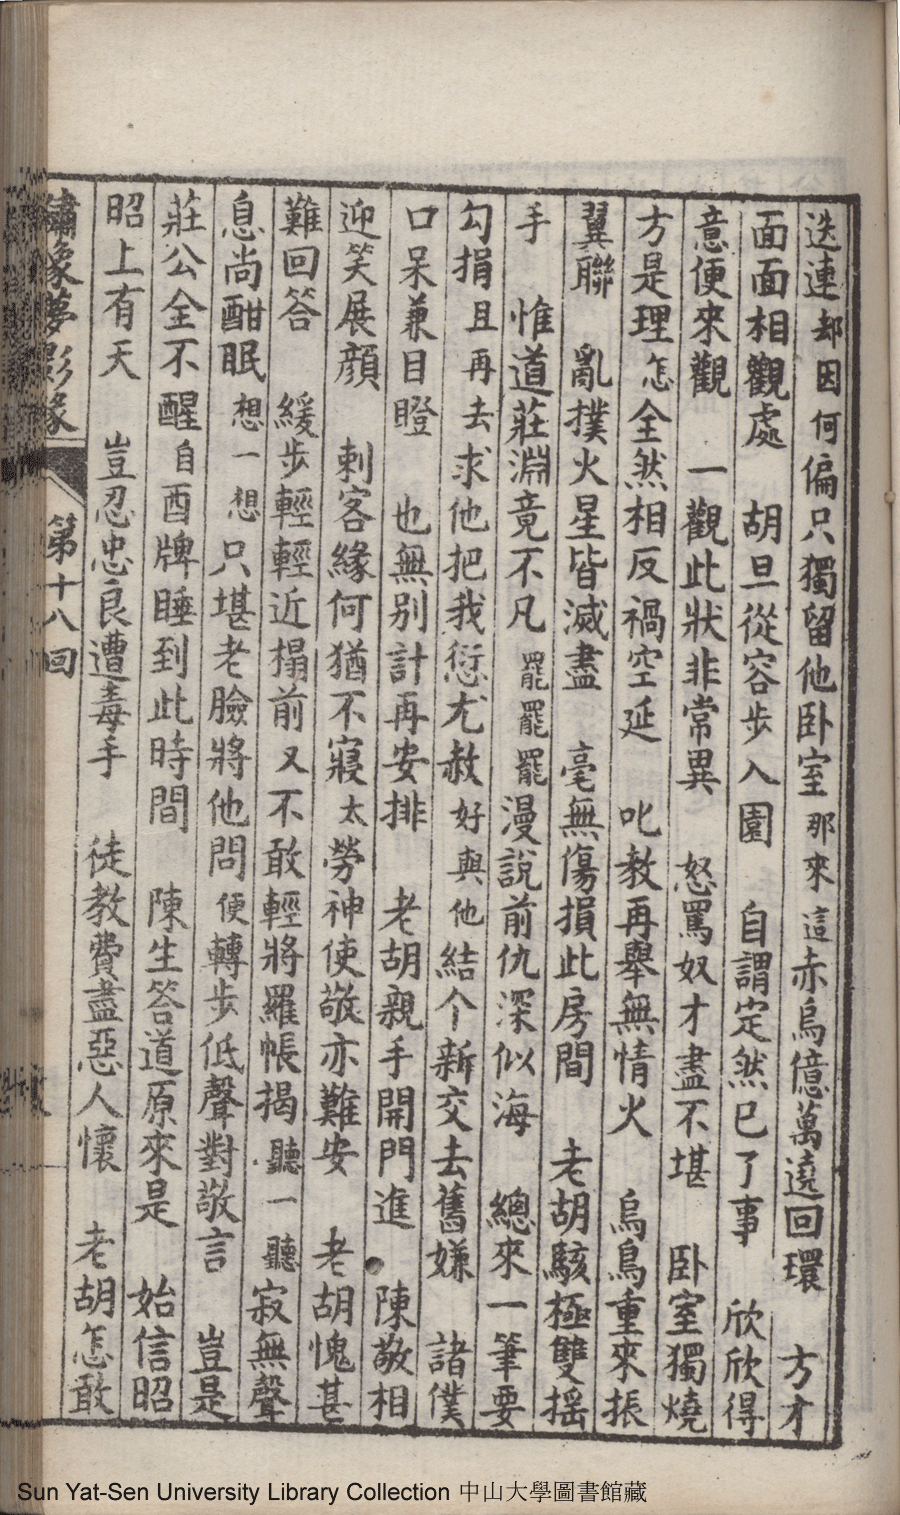 迭連却因何偏只獨留他卧室那來這赤烏億萬遶回環　方才
面面相觀處　胡旦從容步入園　自謂定然已了事　欣欣得
意便來觀　一觀此狀非常異　怒罵奴才盡不堪　卧室獨燒
方是理怎全然相反禍空延　叱教再舉無情火　烏鳥重來振
翼聯　亂撲火星皆滅盡　毫無傷損此房間　老胡駭極雙搖
手　惟道莊淵竟不凡罷罷罷漫說前仇深似海　總來一筆要
勾捐且再去求他把我愆尤赦好與他結个新交去舊嫌　諸僕
口呆兼目瞪　也無別計再安排　老胡親手開門進　陳敬相
迎笑展顔　刺客緣何猶不寢太勞神使敬亦難安　老胡愧甚
難回答　緩步輕輕近榻前又不敢輕將羅帳揭聽一聽寂無聲
息尚酣眠想一想只堪老臉將他問便轉步低聲對敬言　豈是
莊公全不醒自酉牌睡到此時間　陳生答道原來是　始信昭
昭上有天　豈忍忠良遭毒手　徒教費盡惡人懷　老胡怎敢
繡像夢影緣　第十八回
Sun Yat-Sen University Library Collection 中山大學圖書館藏